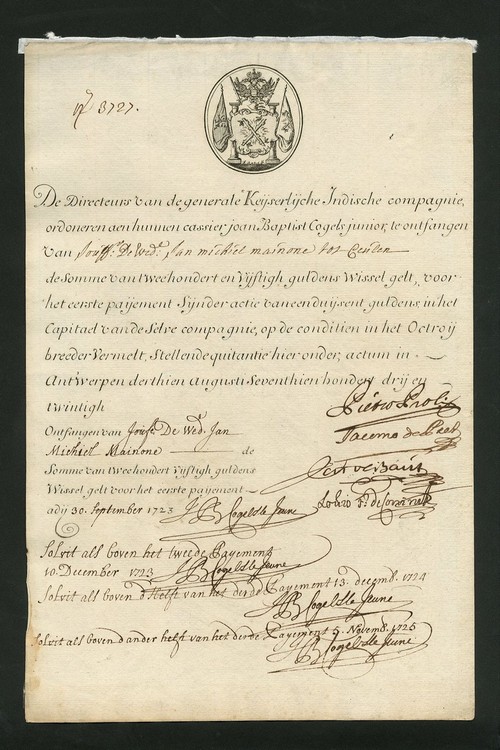 N.º 3727.
De Directeurs van de generale Keyserlijche Indische compagnie,
ordoneren aen hunnen cassier joan Baptist Cogels junior, te ontfangen
van Jouff.ᵉ De Wed.ᵉ Jan michiel mainone tot Ceulen
de Somme van tweehondert en Vijftigh guldens Wissel gelt, voor
het eerste paijement Sijnder actie van een duijsent guldens, in het
Capitael van de Selve compagnie, op de conditien in het Octroij
breeder Vermelt, Stellende quitantie hier onder, actum in
Antwerpen derthien Augusti Seventhien hondert drij en
twintigh
Pietro Proli
Ontfangen van Jouff.ᵉ De Wed.ᵉ Jan
Jacomo de Pret
Michiel Mainone de
Somme van tweehondert Vijftigh guldens
Wissel gelt voor het eerste paijement
adij 30. September 1723 J B Cogels le Jeune
Solvit als boven het tweede Payement
10. December 1723 J B Cogels le Jeune
Solvit als boven d'helft van het derde Payement 13. decemb. 1724
J B Cogels le Jeune
Solvit als boven d'ander helft van het derde Payement 5. Novemb. 1725
J B Cogels le Jeune